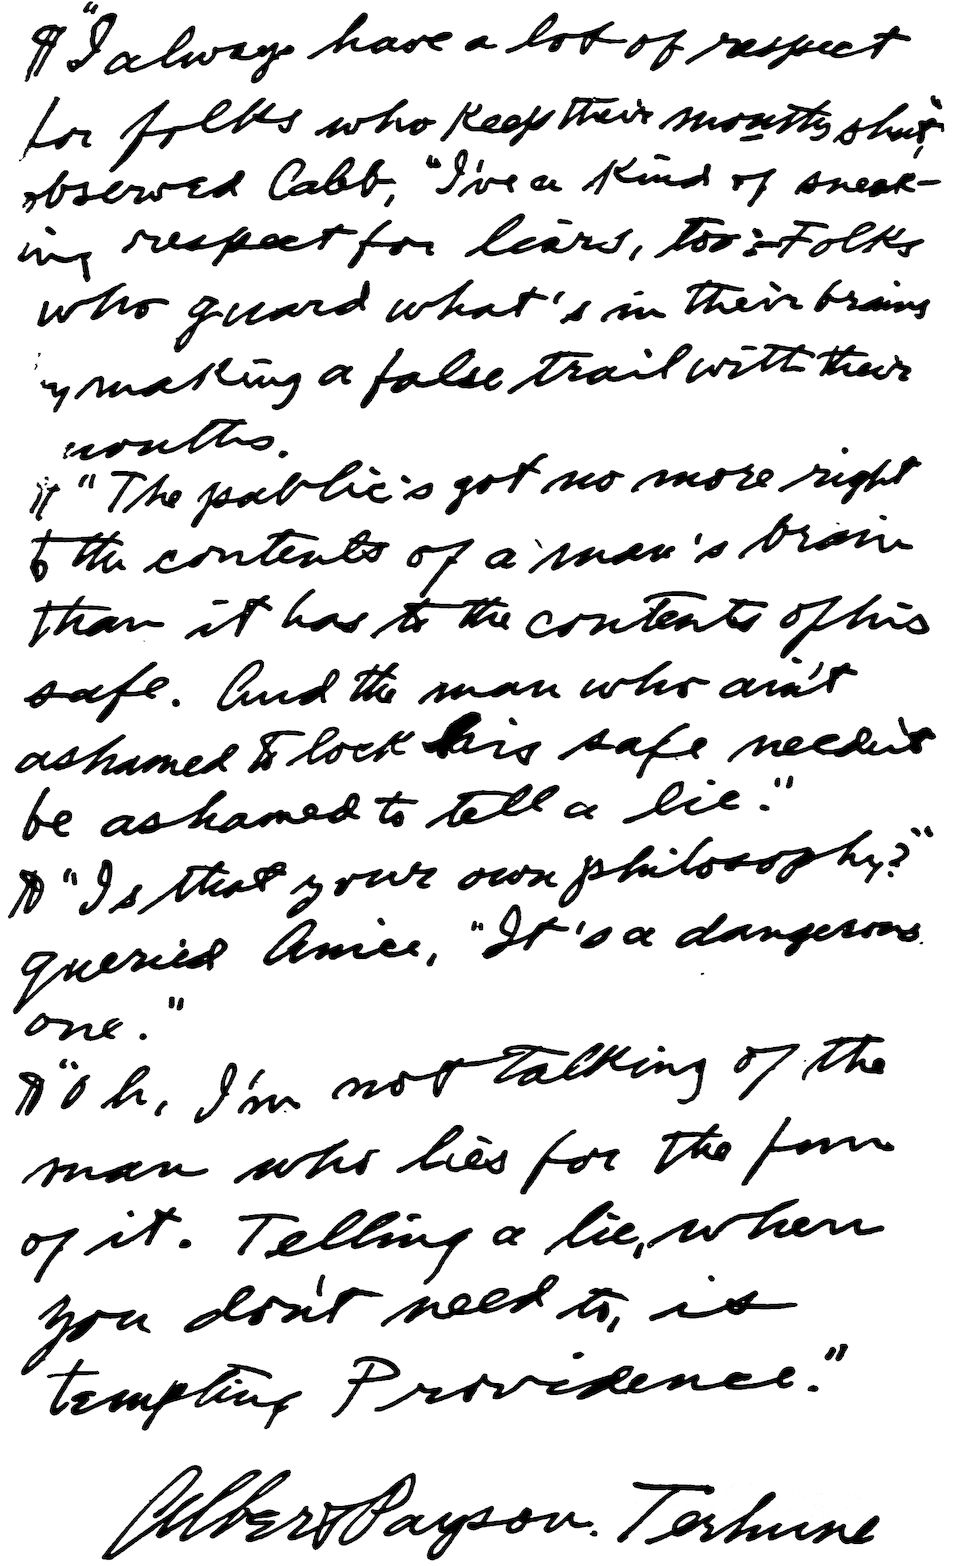 ¶ "I always have a lot of respect
for folks who keep their mouths shut,"
observed Cabb, "I've a kind of sneak-
ing respect for liars, too:—Folks
who guard what's in their brains
by making a false trail with their
mouths.
¶ "The public's got no more right
to the contents of a man's brain
than it has to the contents of his
safe. And the man who ain't
ashamed to lock his safe needn't
be ashamed to tell a lie."
¶ "Is that your own philosophy?"
queried Amice, "It's a dangerous
one."
¶ "Oh, I'm not talking of the
man who lies for the fun
of it. Telling a lie, when
you don't need to, is
tempting Providence."
Albert Payson Terhune